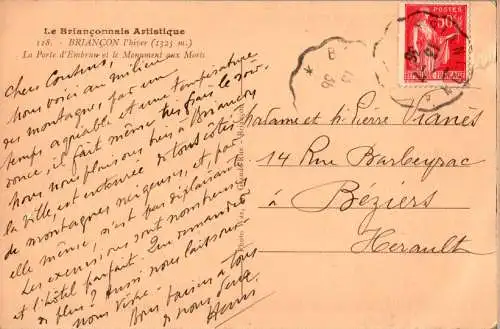 Le Briançonnais Artistique
118. - BRIANÇON l'hiver (1325 m.)
La Porte d'Embrun et le Monument aux Morts
Chers Cousins,
Nous voici au milieu
des montagnes par un
temps agréable et une température
douce, il fait même très frais le soir.
Nous nous plaisons bien à Briançon
la ville, est entourée de tous côtés
de montagnes neigeuses, et, par
elle même, n'est pas déplaisante.
Les excursions sont nombreuses
et l'hôtel parfait. Que demander
de plus? Aussi nous laissons
nous vivre.
Bons baisers à tous
de nous deux
Madame et Mr Pierre Vianès
14 Rue Barbeyrac
à
Béziers
Hérault
POSTES
50c